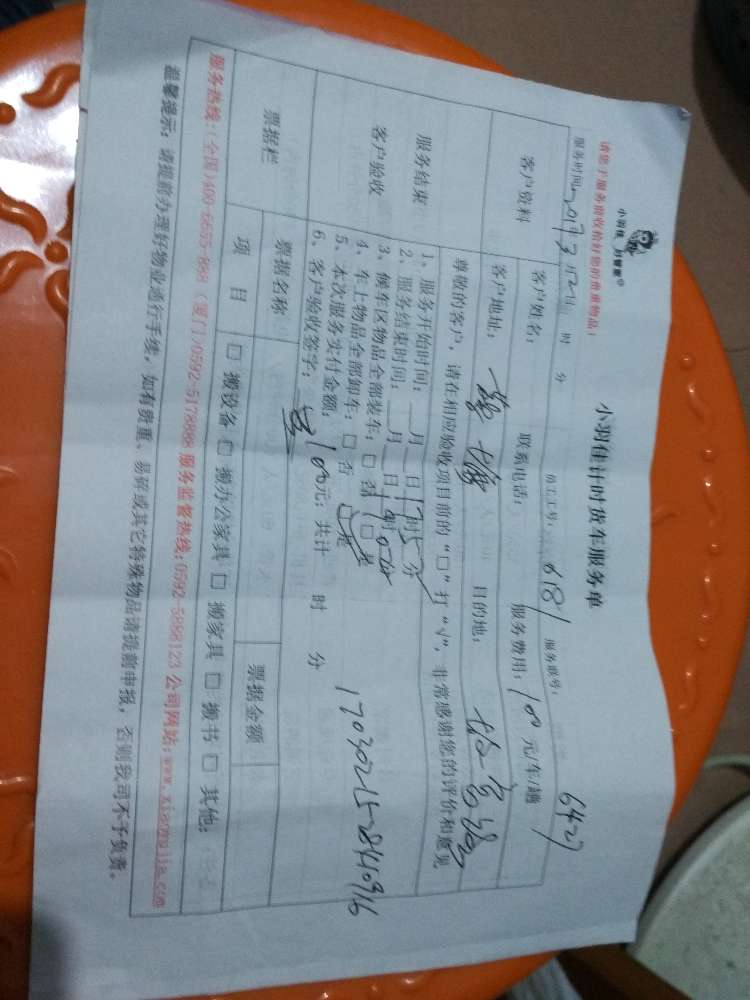 小羽佳 好管家
小羽佳计时货车服务单
请您于服务前收拾好您的贵重物品!
员工工号: 0618 服务账号: 6427
服务时间 时 分
客户资料
客户姓名: 联系电话: 服务费用: 100 元/车/趟
客户地址: 目的地:
服务结束
客户验收
尊敬的客户, 请在相应验收项目前的“□”打“√”, 非常感谢您的评价和意见
1、服务开始时间: 月 日 17时5 分
2、服务结束时间: 月 日
3、候车区物品全部装车: □ 否 □ 是
4、车上物品全部卸车: □ 否 □ 是
5、本次服务实付金额: 100元; 共计 时 分
6、客户验收签字:
1703021528140916
票据栏
票据名称 票据金额
项 目 □ 搬设备 □ 搬办公家具 □ 搬家具 □ 搬书 □ 其他:
服务热线:(全国)400-6655-888 (厦门)0592-5178888 服务监督热线:0592-5888123 公司网站:www.xiaoyujia.com
温馨提示: 请提前办理好物业通行手续, 如有贵重、易碎或其它特殊物品请提前申报, 否则我司不予负责。